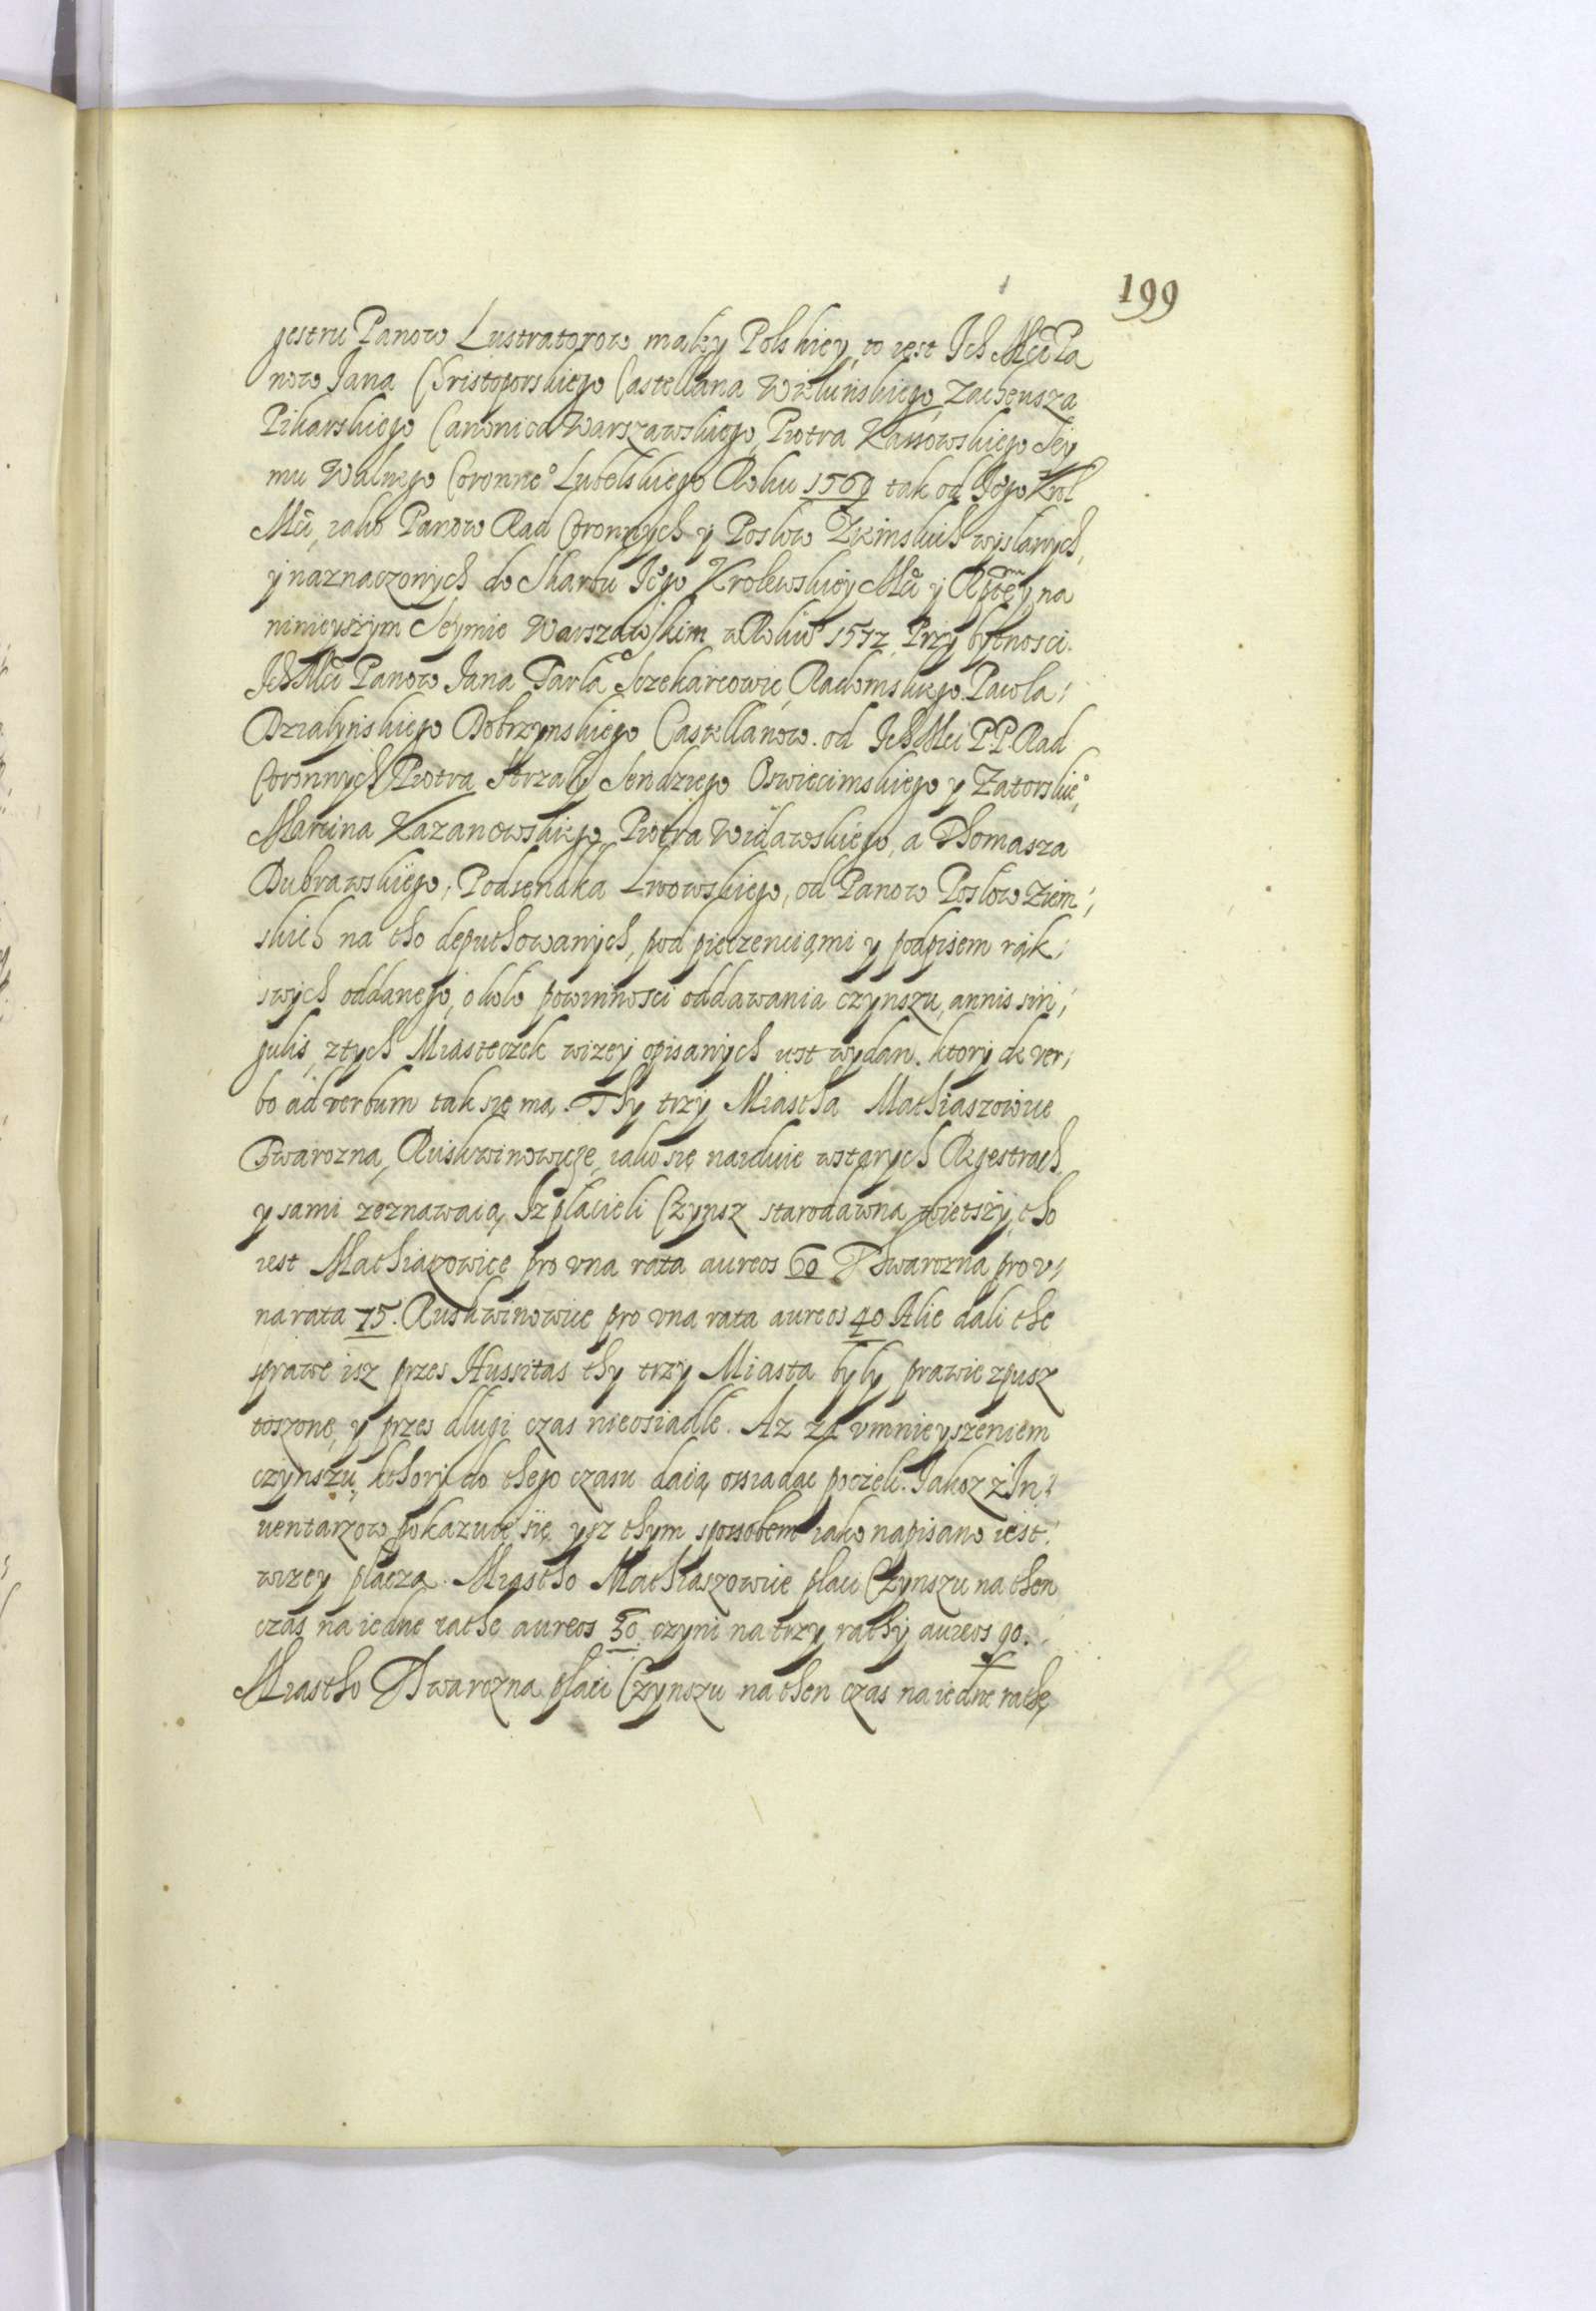 199
gestru Panow Lustratorow małey Polskiey, to iest Ich Mci Pa
now Jana Christoporskiego Castellana Wieluńskiego, Zacheusza
Pikarskiego Canonica Warszawskiego, Piotra Kassowskiego Sey
mu Walnego Coronneo Lubelskiego Roku 1569 tak od Jego Krol
Mci, iako Panow Rad Coronnych y Posłow Ziemskich wysłanych,
y naznaczonych do Skarbu Jego Krolewskiey Mci y Rptey na
ninieyszym Seymie Warszawskim w Roku 1572 Przy bytnosci
Ich Mci Panow Jana Tarła Radomskiego Pawła
Działyńskiego Dobrzynskiego Castellanow. od Ich Mci P.P. Rad
Coronnych Piotra Strzały Sendziego Oswiecimskiego y Zatorskieo,
Marcina Kazanowskiego, Piotra Widawskiego, a Thomasza
Dubrawskiego, Podsendka Lwowskiego, od Panow Posłow Ziem,
skich na tho deputhowanych, pod pieczenciąmi y podpisem rąk,
swych oddanego, około powinnosci oddawania czynszu, annis sin,
gulis, ztych Miasteczek wizey opisanych iest wydan. ktory de ver,
bo ad verbum tak się ma. Thy trzy Miastha Mathiaszowice
Twarozna, Ruskwinowicze, iako się naiduie wstarych Regestrach
y sami zeznawaią, Iz płacieli Czynsz starodawna wietszy, tho
iest Mathiazowice pro vna rata aureos 60 Thwarozna pro v,
na rata 75. Ruskwinowice pro vna rata aureos 40 Alie dali the
sprawe isz przes Hussitas thy trzy Miasta były prawie zpusz
toszone, y przes długi czas nieosiadłe. Az za vmnieyszeniem
czynszu, kthory do thego czasu daią, ossiadac poczeli. Jakoz z In,
uentarzow pokazuie się ysz thym sposobem iako napisano iest
wizey płaczą. Miastho Mathiaszowice płaci Czynszu na then
czas na iedne rathe aureos 30 czyni na trzy rathy aureos 90.
Miastho Thwarozna płaci Czynszu na then czas na iedne rathę